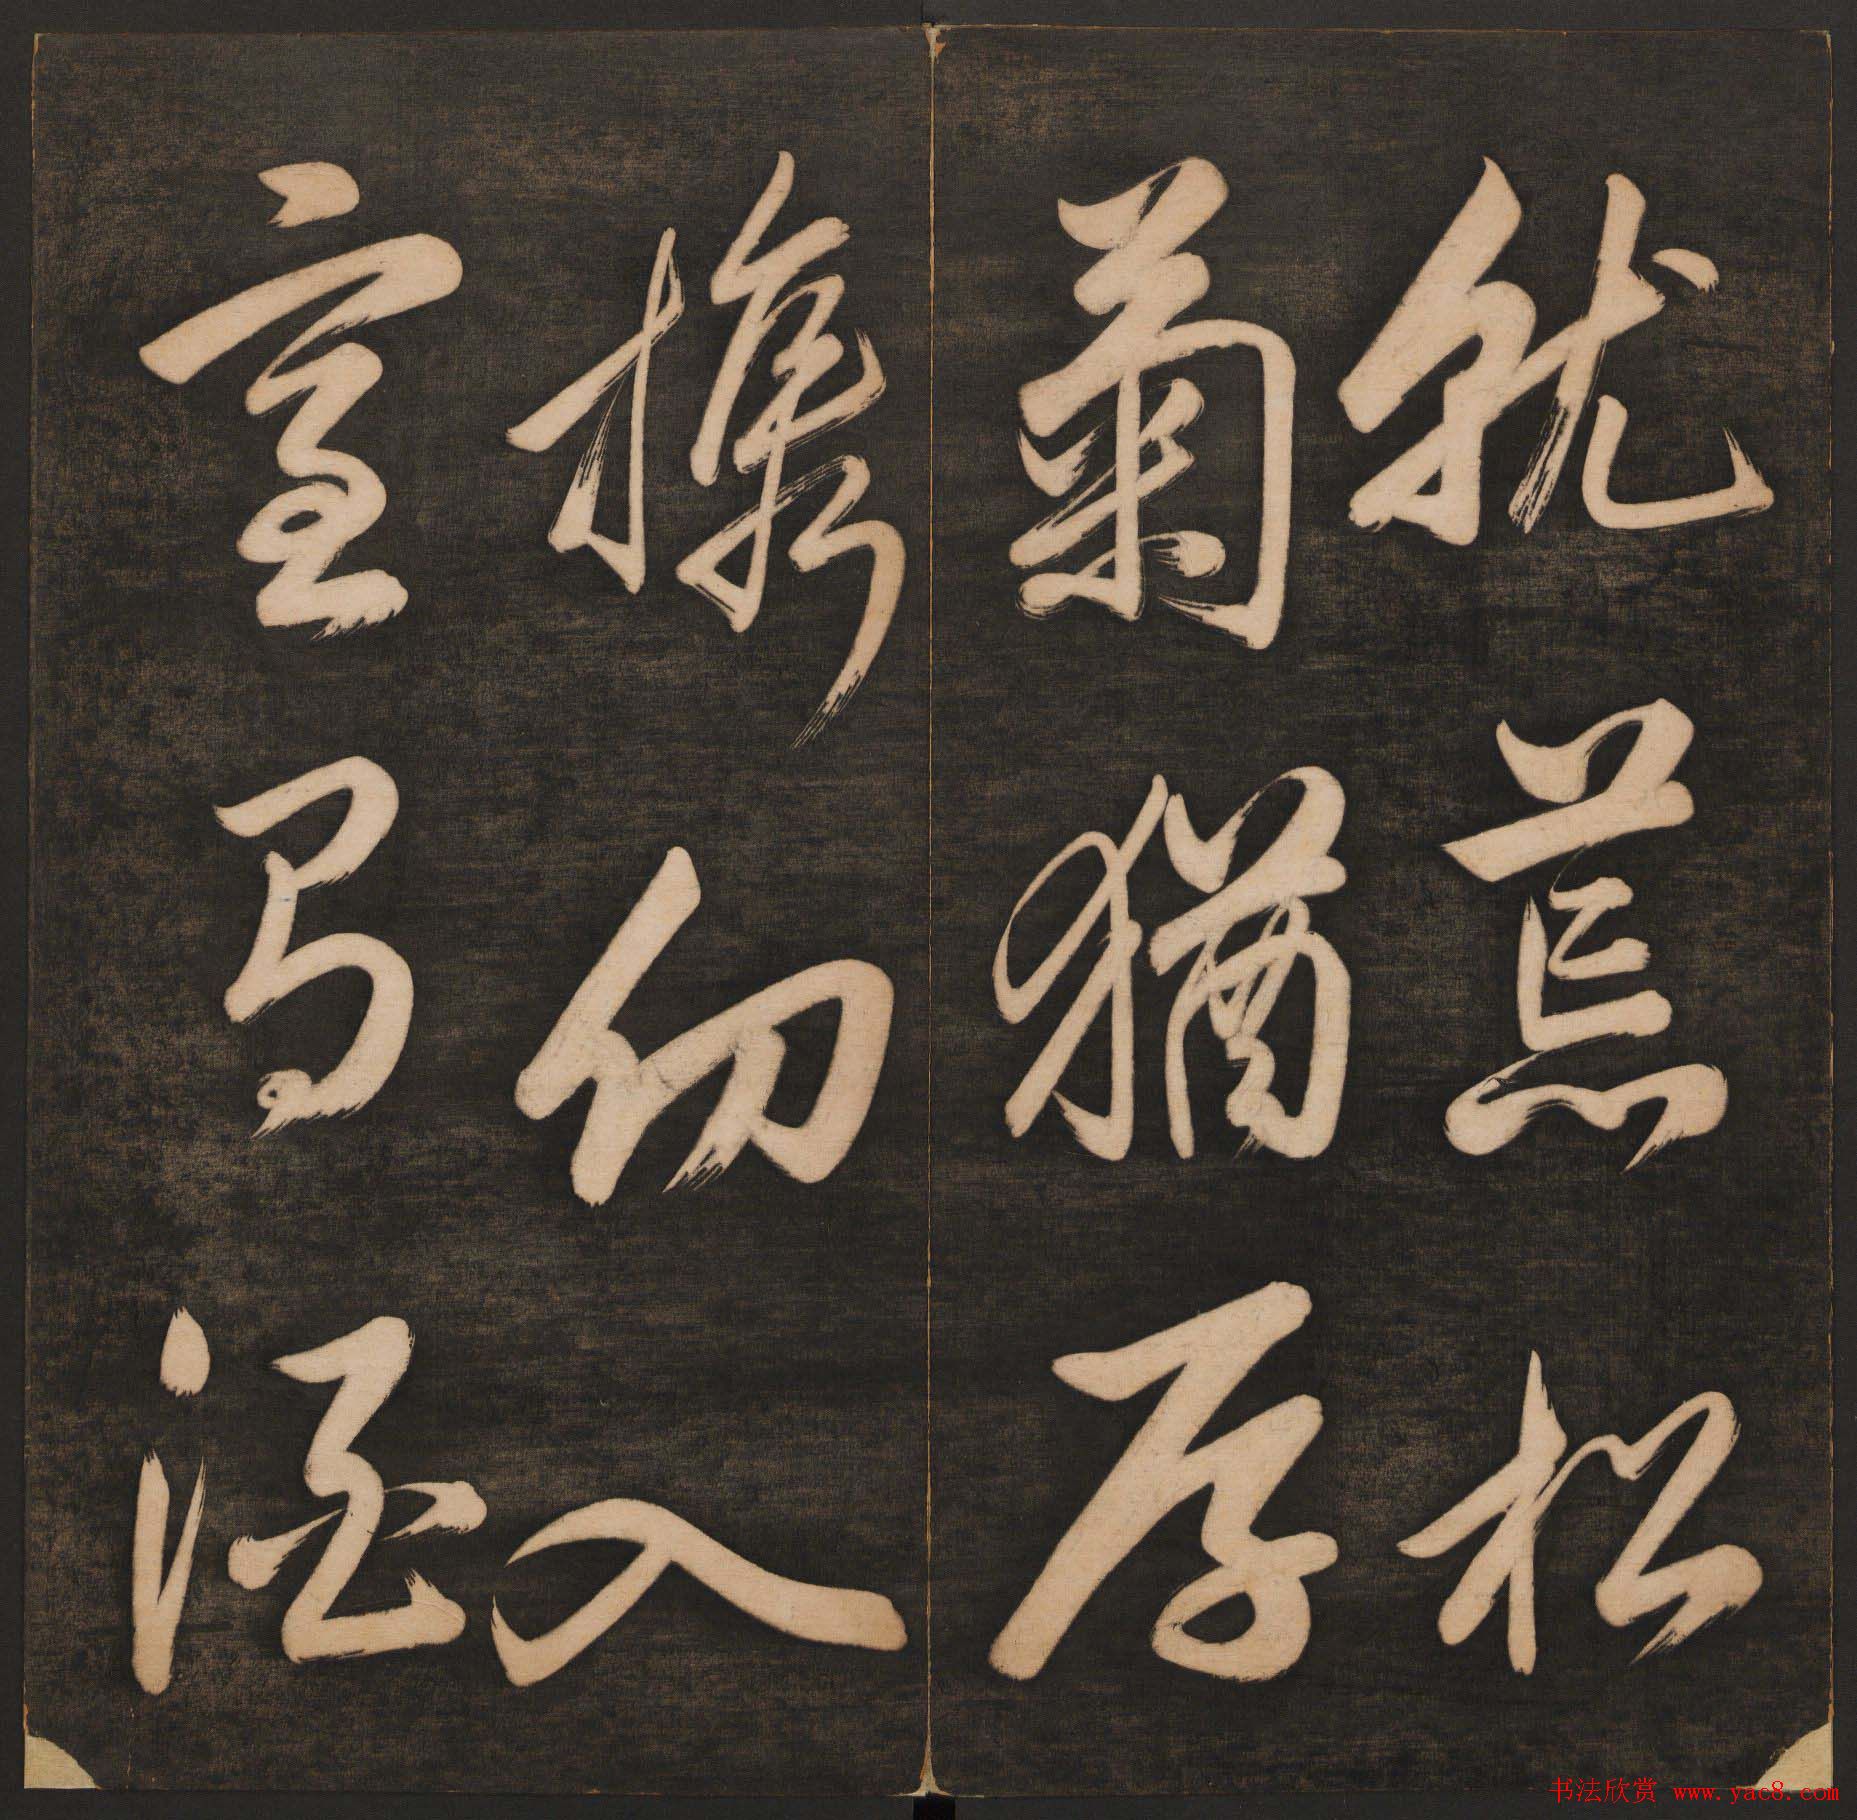 就荒松
菊猶存
携幼入
室有酒
书法欣赏 www.yac8.com